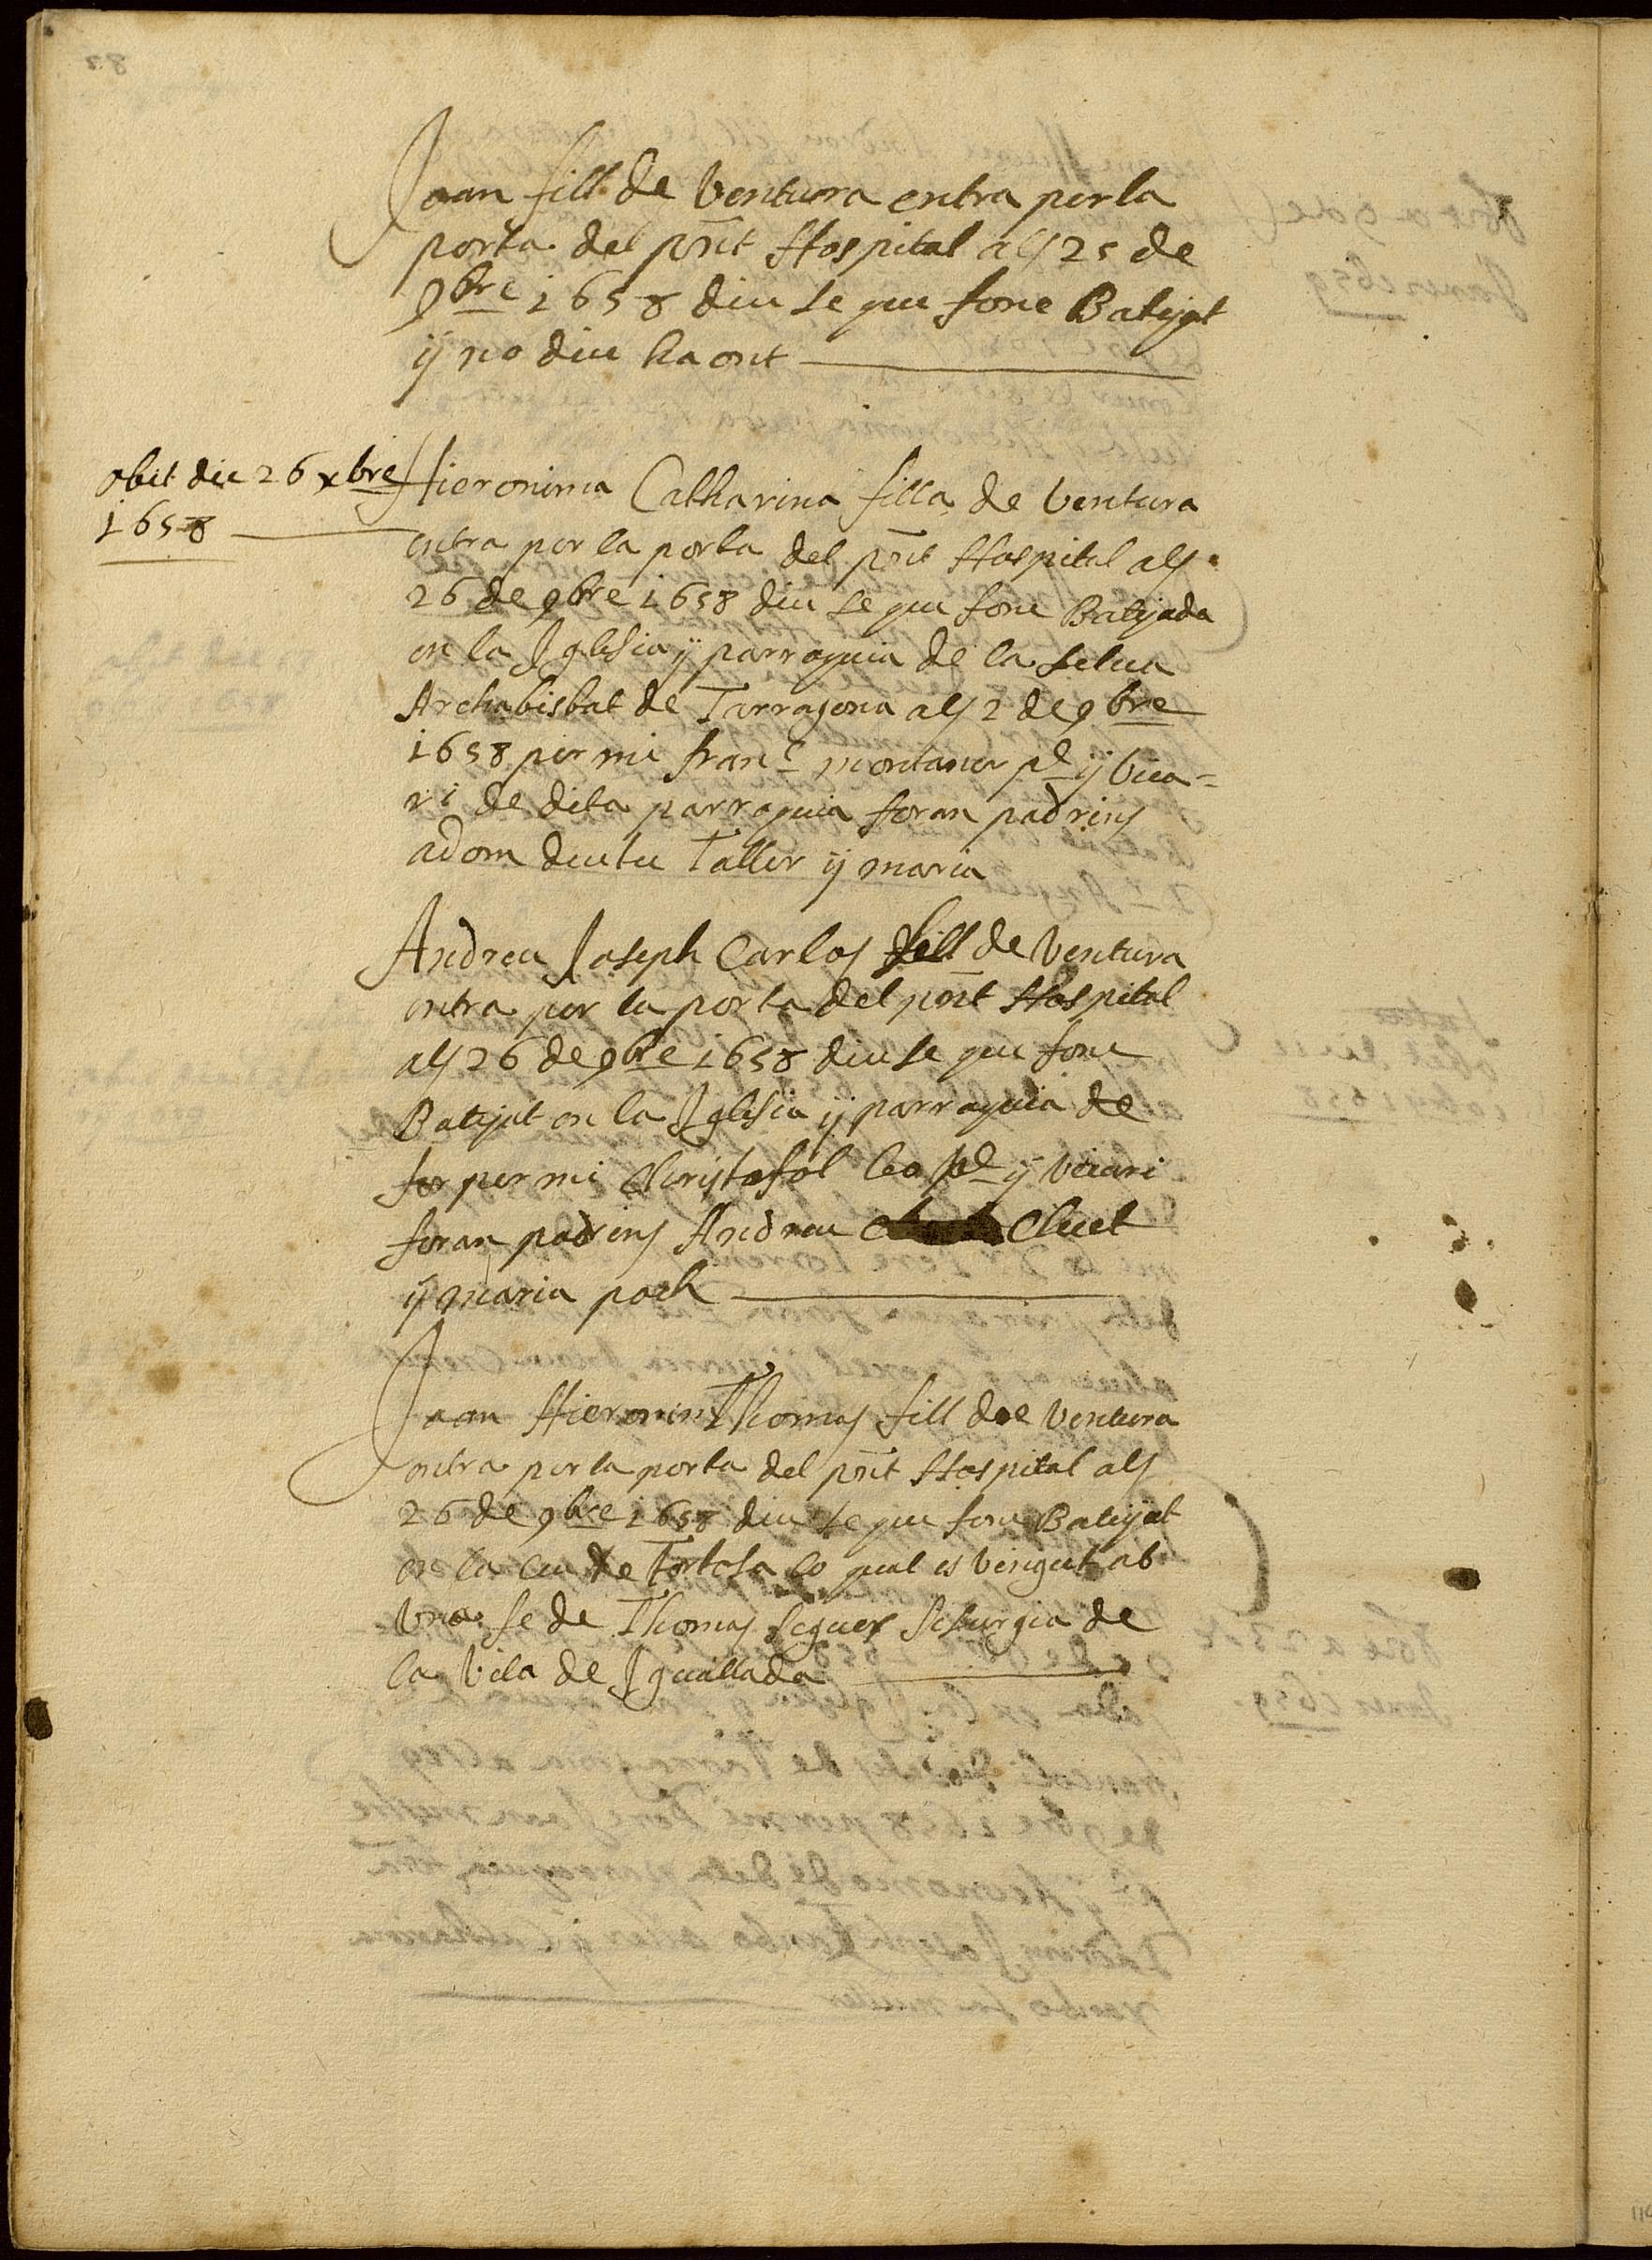 Joan fill de Ventura entra per la
porta del pñt Hospital als 25 de
9bre 1658 diu se que fonc Batejat
ÿ no diu ha ont
obit die 26 xbre
1658
Hieronima Catharina filla de Ventura
entra per la porta del pñt Hospital als
26 de 9bre 1658 diu se que fonc Batejada
en la Iglesia ÿ parroquia de la selva
Archabisbat de Tarragona als 2 de 9bre
1658 per mi franc montaner pe ÿ vica=
ri de dita parroquia foran padrins
adom Taller ÿ maria
Andreu Joseph Carlos fill de Ventura
entra per la porta del pñt Hospital
als 26 de 9bre 1658 diu se que fonc
Batejat en la Iglesia ÿ parroquia de
per mi Christofol pe ÿ vicari
foran padrins Andreu Cluet
ÿ maria poch
Joan Hieronim Thomas fill de Ventura
entra per la porta del pñt Hospital als
26 de 9bre 1658 diu se que fonc Batejat
en la seu de Tortosa lo qual es vingut ab
una fe de Thomas Seguer Sisurgia de
la vila de Iguallada